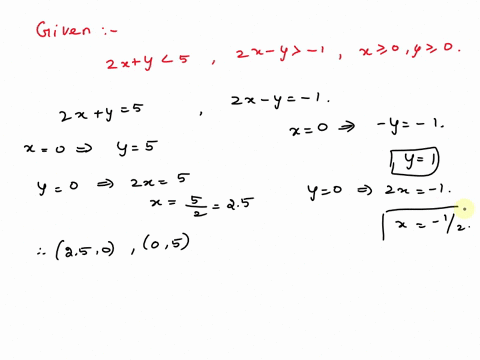 Given :-
2x+y<5 , 2x-y>-1 , x≥0, y≥0.
2x+y=5 , 2x-y=-1.
x=0 ⇒ y=5
y=0 ⇒ 2x=5
x=5/2=2.5
∴ (2.5,0) , (0,5)
x=0 ⇒ -y=-1.
y=1
y=0 ⇒ 2x=-1.
x=-1/2.